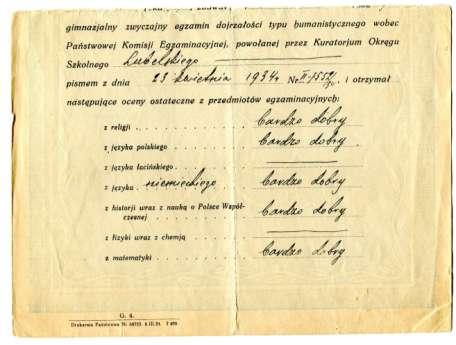 gimnazjalny zwyczajny egzamin dojrzałości typu humanistycznego wobec
Państwowej Komisji Egzaminacyjnej, powołanej przez Kuratorjum Okręgu
Szkolnego Lubelskiego
pismem z dnia 23 kwietnia 1934r Nr II-1552/ i otrzymał
następujące oceny ostateczne z przedmiotów egzaminacyjnych:
z religji bardzo dobry
z języka polskiego bardzo dobry
z języka łacińskiego
z języka niemieckiego bardzo dobry
z historji wraz z nauką o Polsce Współ-
czesnej bardzo dobry
z fizyki wraz z chemją
z matematyki bardzo dobry
G. 4.
Drukarnia Państwowa Nr